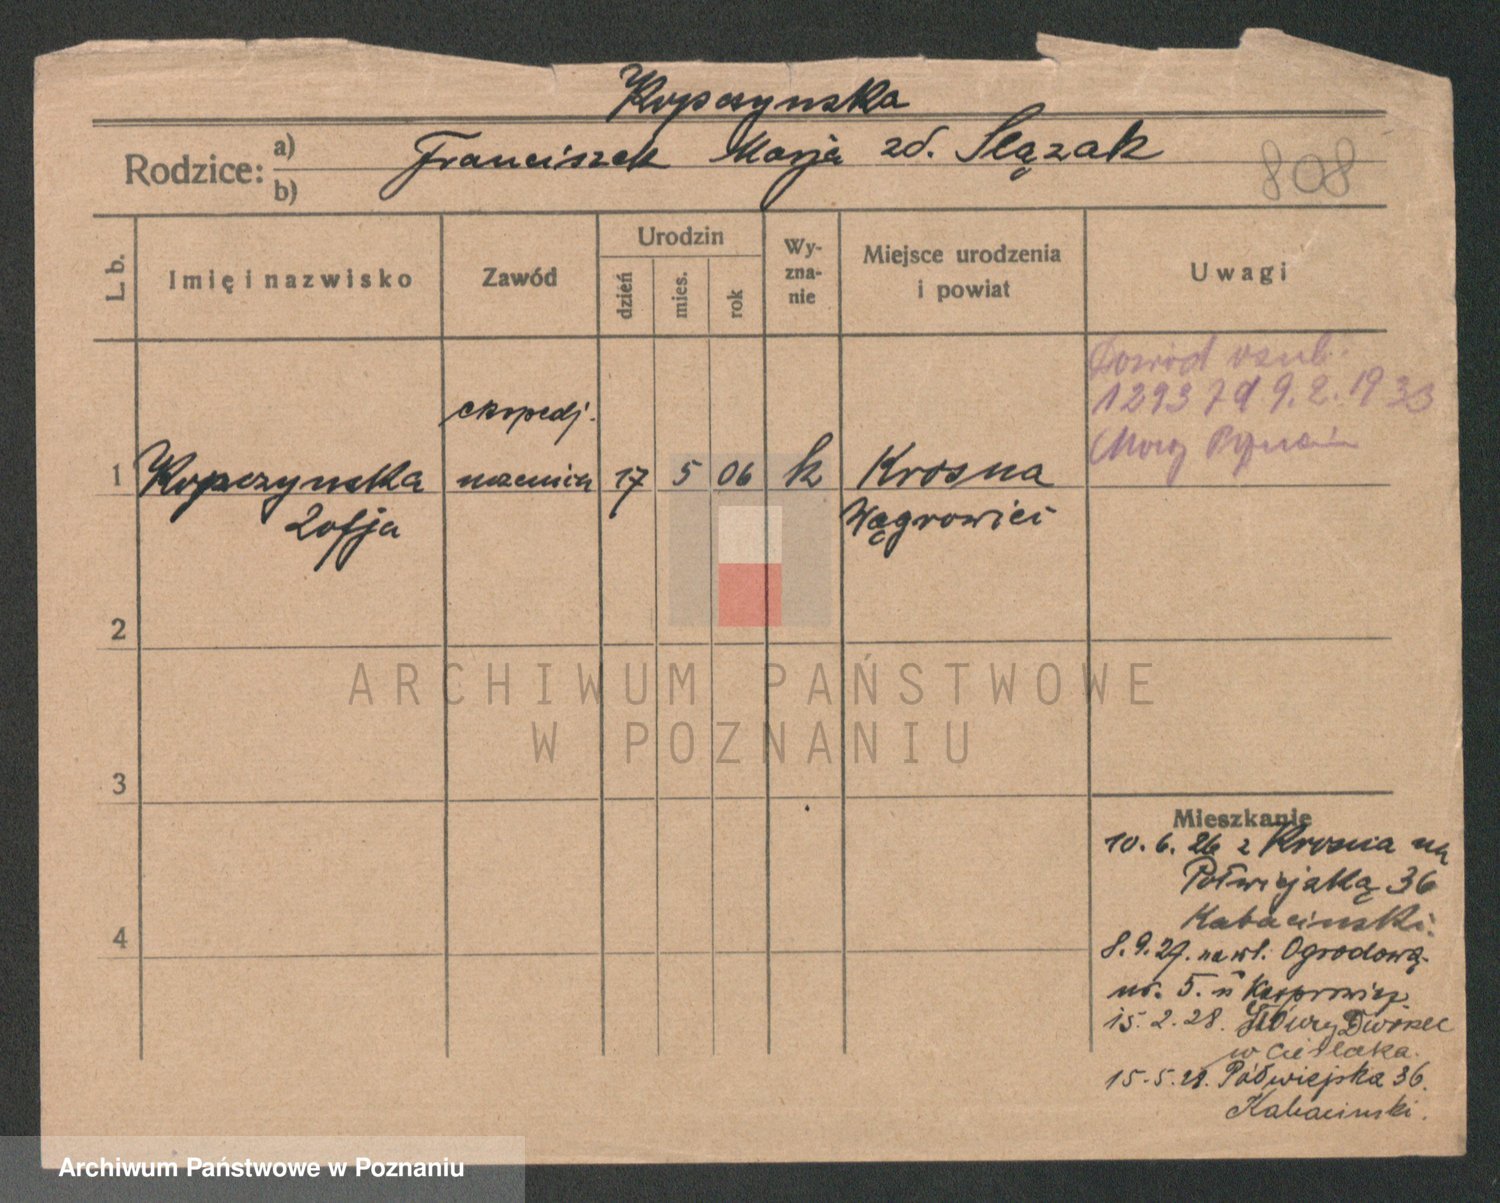 Kopczynska
Rodzice: a) Franciszek Marja zd. Ślązak
b)
808
L. b.
Imię i nazwisko
Zawód
Urodzin
dzień
mies.
rok
Wy-
zna-
nie
Miejsce urodzenia
i powiat
Uwagi
Dowód osob.
12937 d 9.2.1933
1 Kopczynska
Zofja
ekspedj.
17 5 06 k Krosna
Wągrowiec
2
3
4
ARCHIWUM PAŃSTWOWE
W POZNANIU
Mieszkanie
10.6.26 z Krosna na
Półwiejską 36
Kabacinski.
8.9.27. na ul. Ogrodową
nr. 5. u Kasprowicz
15.2.28.
15.5.28. Półwiejska 36.
Kabacinski.
Archiwum Państwowe w Poznaniu